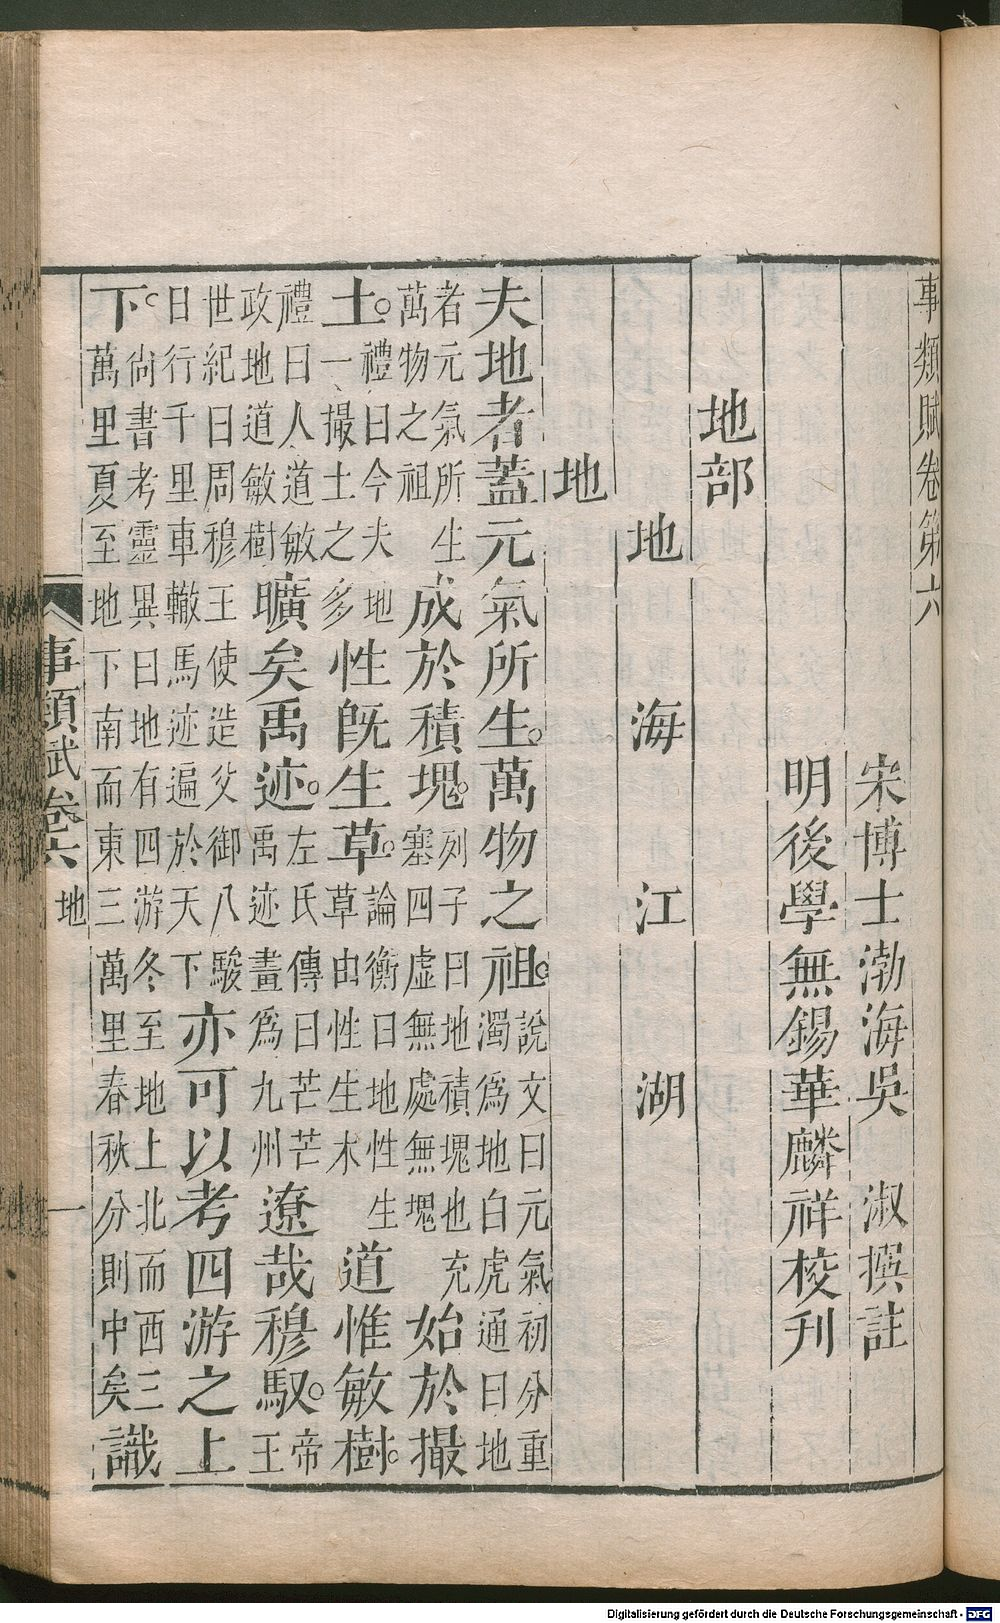 事類賦卷第六
宋博士渤海吳 淑撰註
明後學無錫華麟祥校刊
地部
地 海 江 湖
地
夫地者蓋元氣所生。萬物之祖。說文曰元氣初分重濁爲地白虎通曰地
者元氣所生萬物之祖成於積塊。列子曰地積塊也充塞四虛無處無塊始於撮
土。禮曰今夫地一撮土之多性旣生草。論衡曰地性生草由性生木道惟敏樹。
禮曰人道敏政地道敏樹曠矣禹迹。左氏傳曰芒芒禹迹畫爲九州遼哉穆馭。帝王
世紀曰周穆王使造父御八駿日行千里車轍馬迹遍於天下亦可以考四游之上
下。尙書考靈異曰地有四游冬至地上北而西三萬里夏至地下南而東三萬里春秋分則中矣識
事類賦卷六 地 一
Digitalisierung gefördert durch die Deutsche Forschungsgemeinschaft - DFG